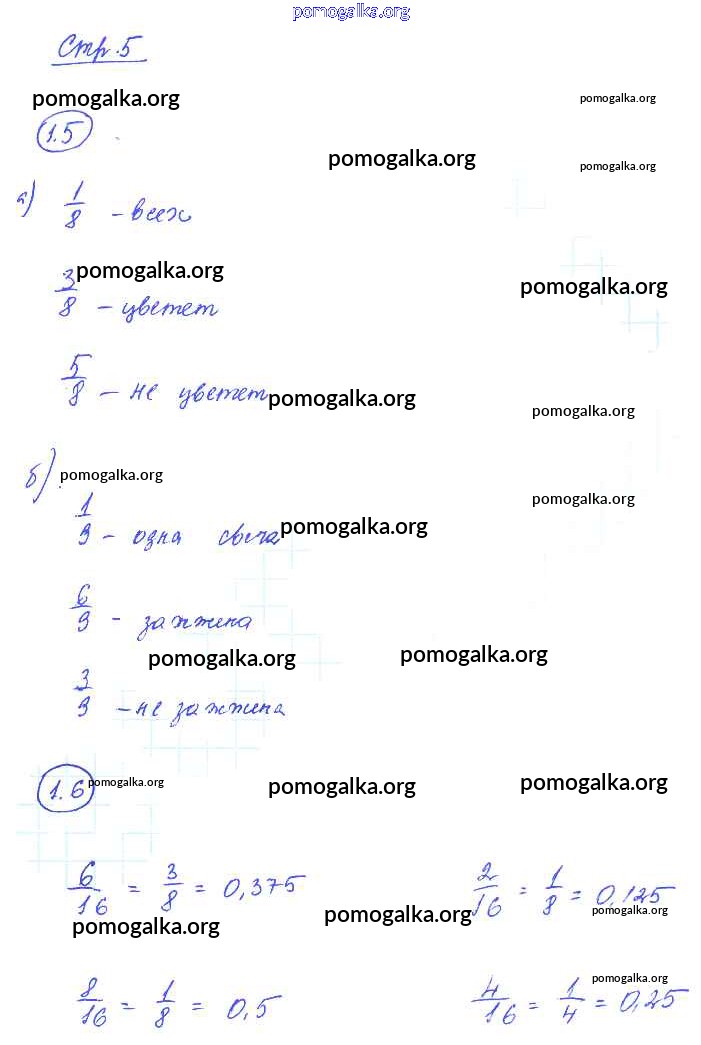 pomogalka.org
Стр. 5
pomogalka.org pomogalka.org
1.5
pomogalka.org pomogalka.org
а) 1/8 - всех
pomogalka.org pomogalka.org
3/8 - цветет
5/8 - не цветет pomogalka.org pomogalka.org
б) pomogalka.org pomogalka.org
1/9 - одна свеча pomogalka.org
6/9 - зажжена
pomogalka.org pomogalka.org
3/9 - не зажжена
1.6 pomogalka.org pomogalka.org pomogalka.org
6/16 = 3/8 = 0,375 2/16 = 1/8 = 0,125
pomogalka.org pomogalka.org pomogalka.org
pomogalka.org
8/16 = 1/8 = 0,5 4/16 = 1/4 = 0,25